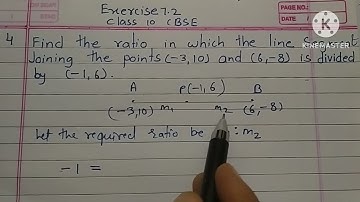 Exercise 7.2
Class 10 CBSE
PAGE No.:
DATE
KINEMASTER
4 Find the ratio in which the line
Joining the points (-3,10) and (6,-8) is divided
by (-1,6).
A P(-1,6) B
(-3,10) m₁ m₂ (6,-8)
Let the required ratio be : m₂
-1 =